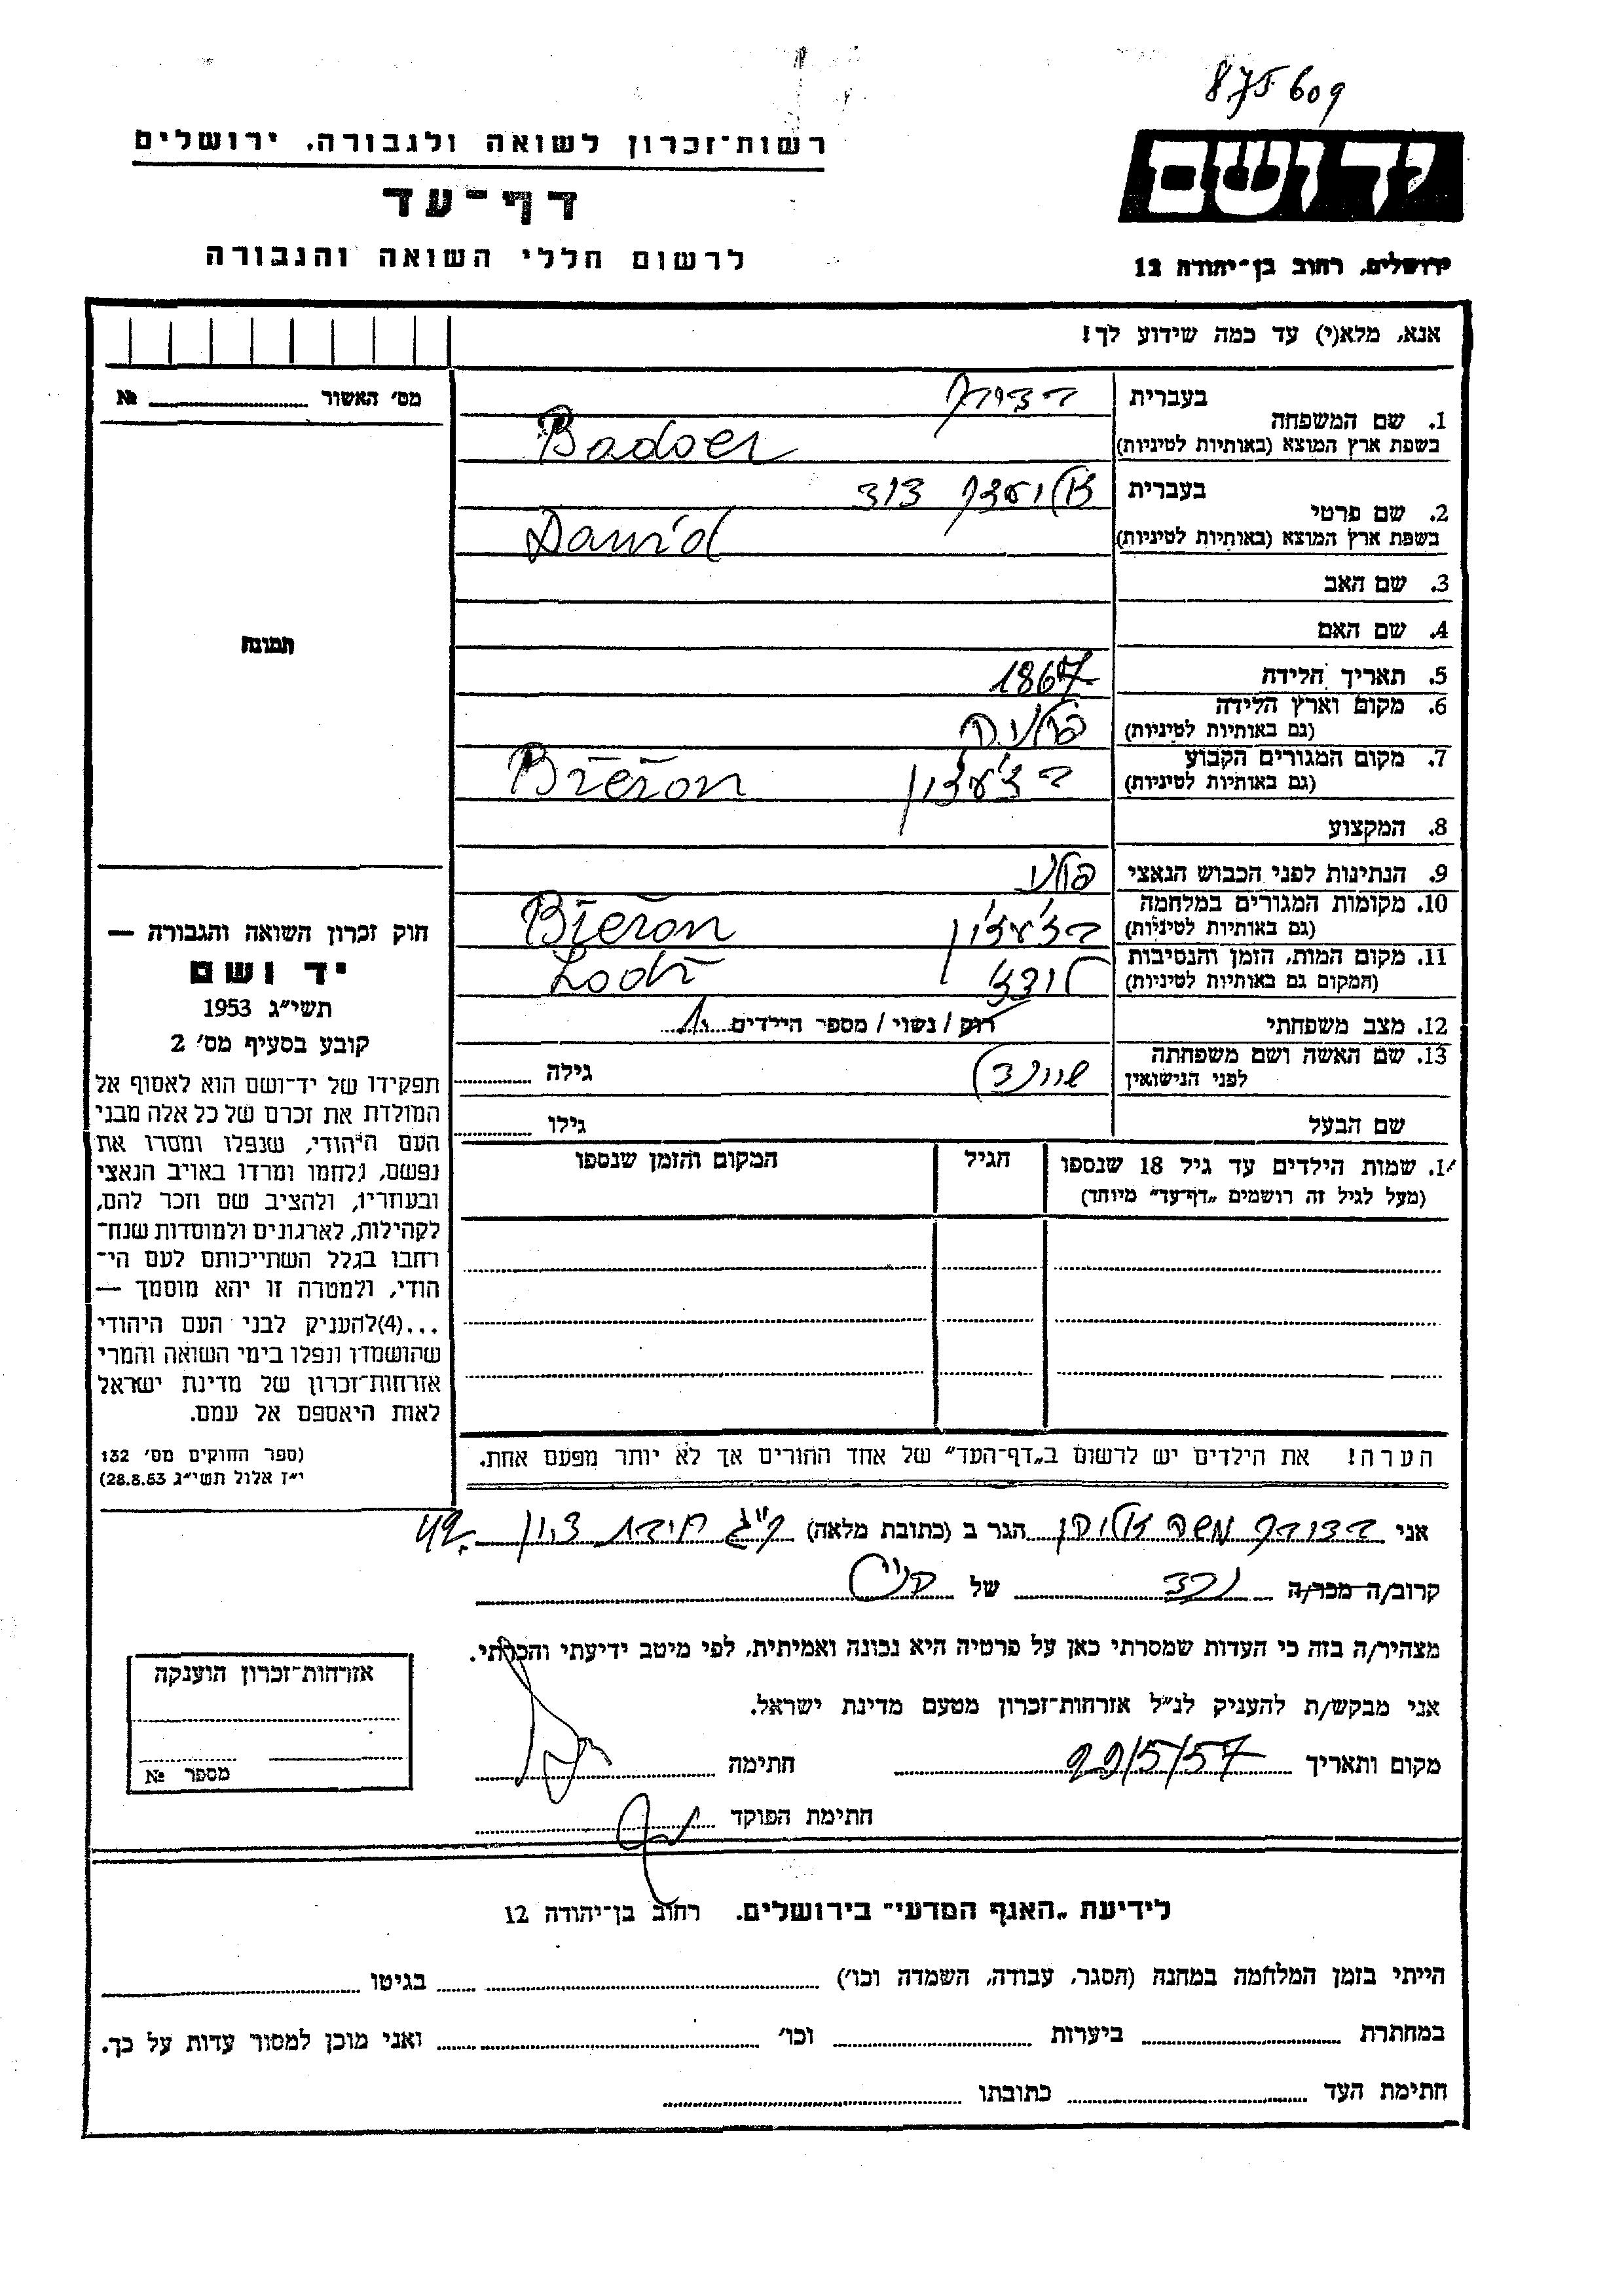 875609
רשות־זכרון לשואה ולגבורה. ירושלים
יד ושם
דף־עד
לרשום חללי השואה והגבורה
ירושלים, רחוב בן־יהודה 12
אנא, מלא(י) עד כמה שידוע לך!
מס׳ האשור № 
תמונה
1. שם המשפחה
בעברית
בשפת ארץ המוצא (באותיות לטיניות) Badoer
2. שם פרטי
בעברית דוד
בשפת ארץ המוצא (באותיות לטיניות) Dawid
3. שם האב
4. שם האם
5. תאריך הלידה 1867
6. מקום וארץ הלידה
(גם באותיות לטיניות)
7. מקום המגורים הקבוע
(גם באותיות לטיניות) Bzezon
8. המקצוע
9. הנתינות לפני הכבוש הנאצי
10. מקומות המגורים במלחמה
(גם באותיות לטיניות)
11. מקום המות, הזמן והנסיבות
(המקום גם באותיות לטיניות) Lodz
12. מצב משפחתי רוק / נשוי / מספר הילדים
13. שם האשה ושם משפחתה
לפני הנישואין
גילה
שם הבעל
גילו
14. שמות הילדים עד גיל 18 שנספו
(מעל לגיל זה רושמים „דף־עד” מיוחד)
הגיל
המקום והזמן שנספו
הערה! את הילדים יש לרשום ב„דף־העד” של אחד ההורים אך לא יותר מפעם אחת.
חוק זכרון השואה והגבורה —
יד ושם
תשי״ג 1953
קובע בסעיף מס׳ 2
תפקידו של יד־ושם הוא לאסוף אל
המולדת את זכרם של כל אלה מבני
העם היהודי, שנפלו ומסרו את
נפשם, נלחמו ומרדו באויב הנאצי
ובעוזריו, ולהציב שם וזכר להם,
לקהילות, לארגונים ולמוסדות שנח־
רבו בגלל השתייכותם לעם הי־
הודי, ולמטרה זו יהא מוסמך —
...(4)להעניק לבני העם היהודי
שהושמדו ונפלו בימי השואה והמרי
אזרחות־זכרון של מדינת ישראל
לאות היאספם אל עמם.
(ספר החוקים מס׳ 132
י״ז אלול תשי״ג 28.8.53)
אני משה הגר ב (כתובת מלאה)
קרוב/ה מכר/ה נכד של
מצהיר/ה בזה כי העדות שמסרתי כאן על פרטיה היא נכונה ואמיתית, לפי מיטב ידיעתי והכרתי.
אני מבקש/ת להעניק לנ״ל אזרחות־זכרון מטעם מדינת ישראל.
מקום ותאריך 22/5/57 חתימה
חתימת הפוקד
אזרחות־זכרון הוענקה
מספר №
לידיעת „האגף המדעי” בירושלים. רחוב בן־יהודה 12
הייתי בזמן המלחמה במחנה (הסגר, עבודה, השמדה וכו׳) בגיטו
במחתרת ביערות וכו׳ ואני מוכן למסור עדות על כך.
חתימת העד כתובתו